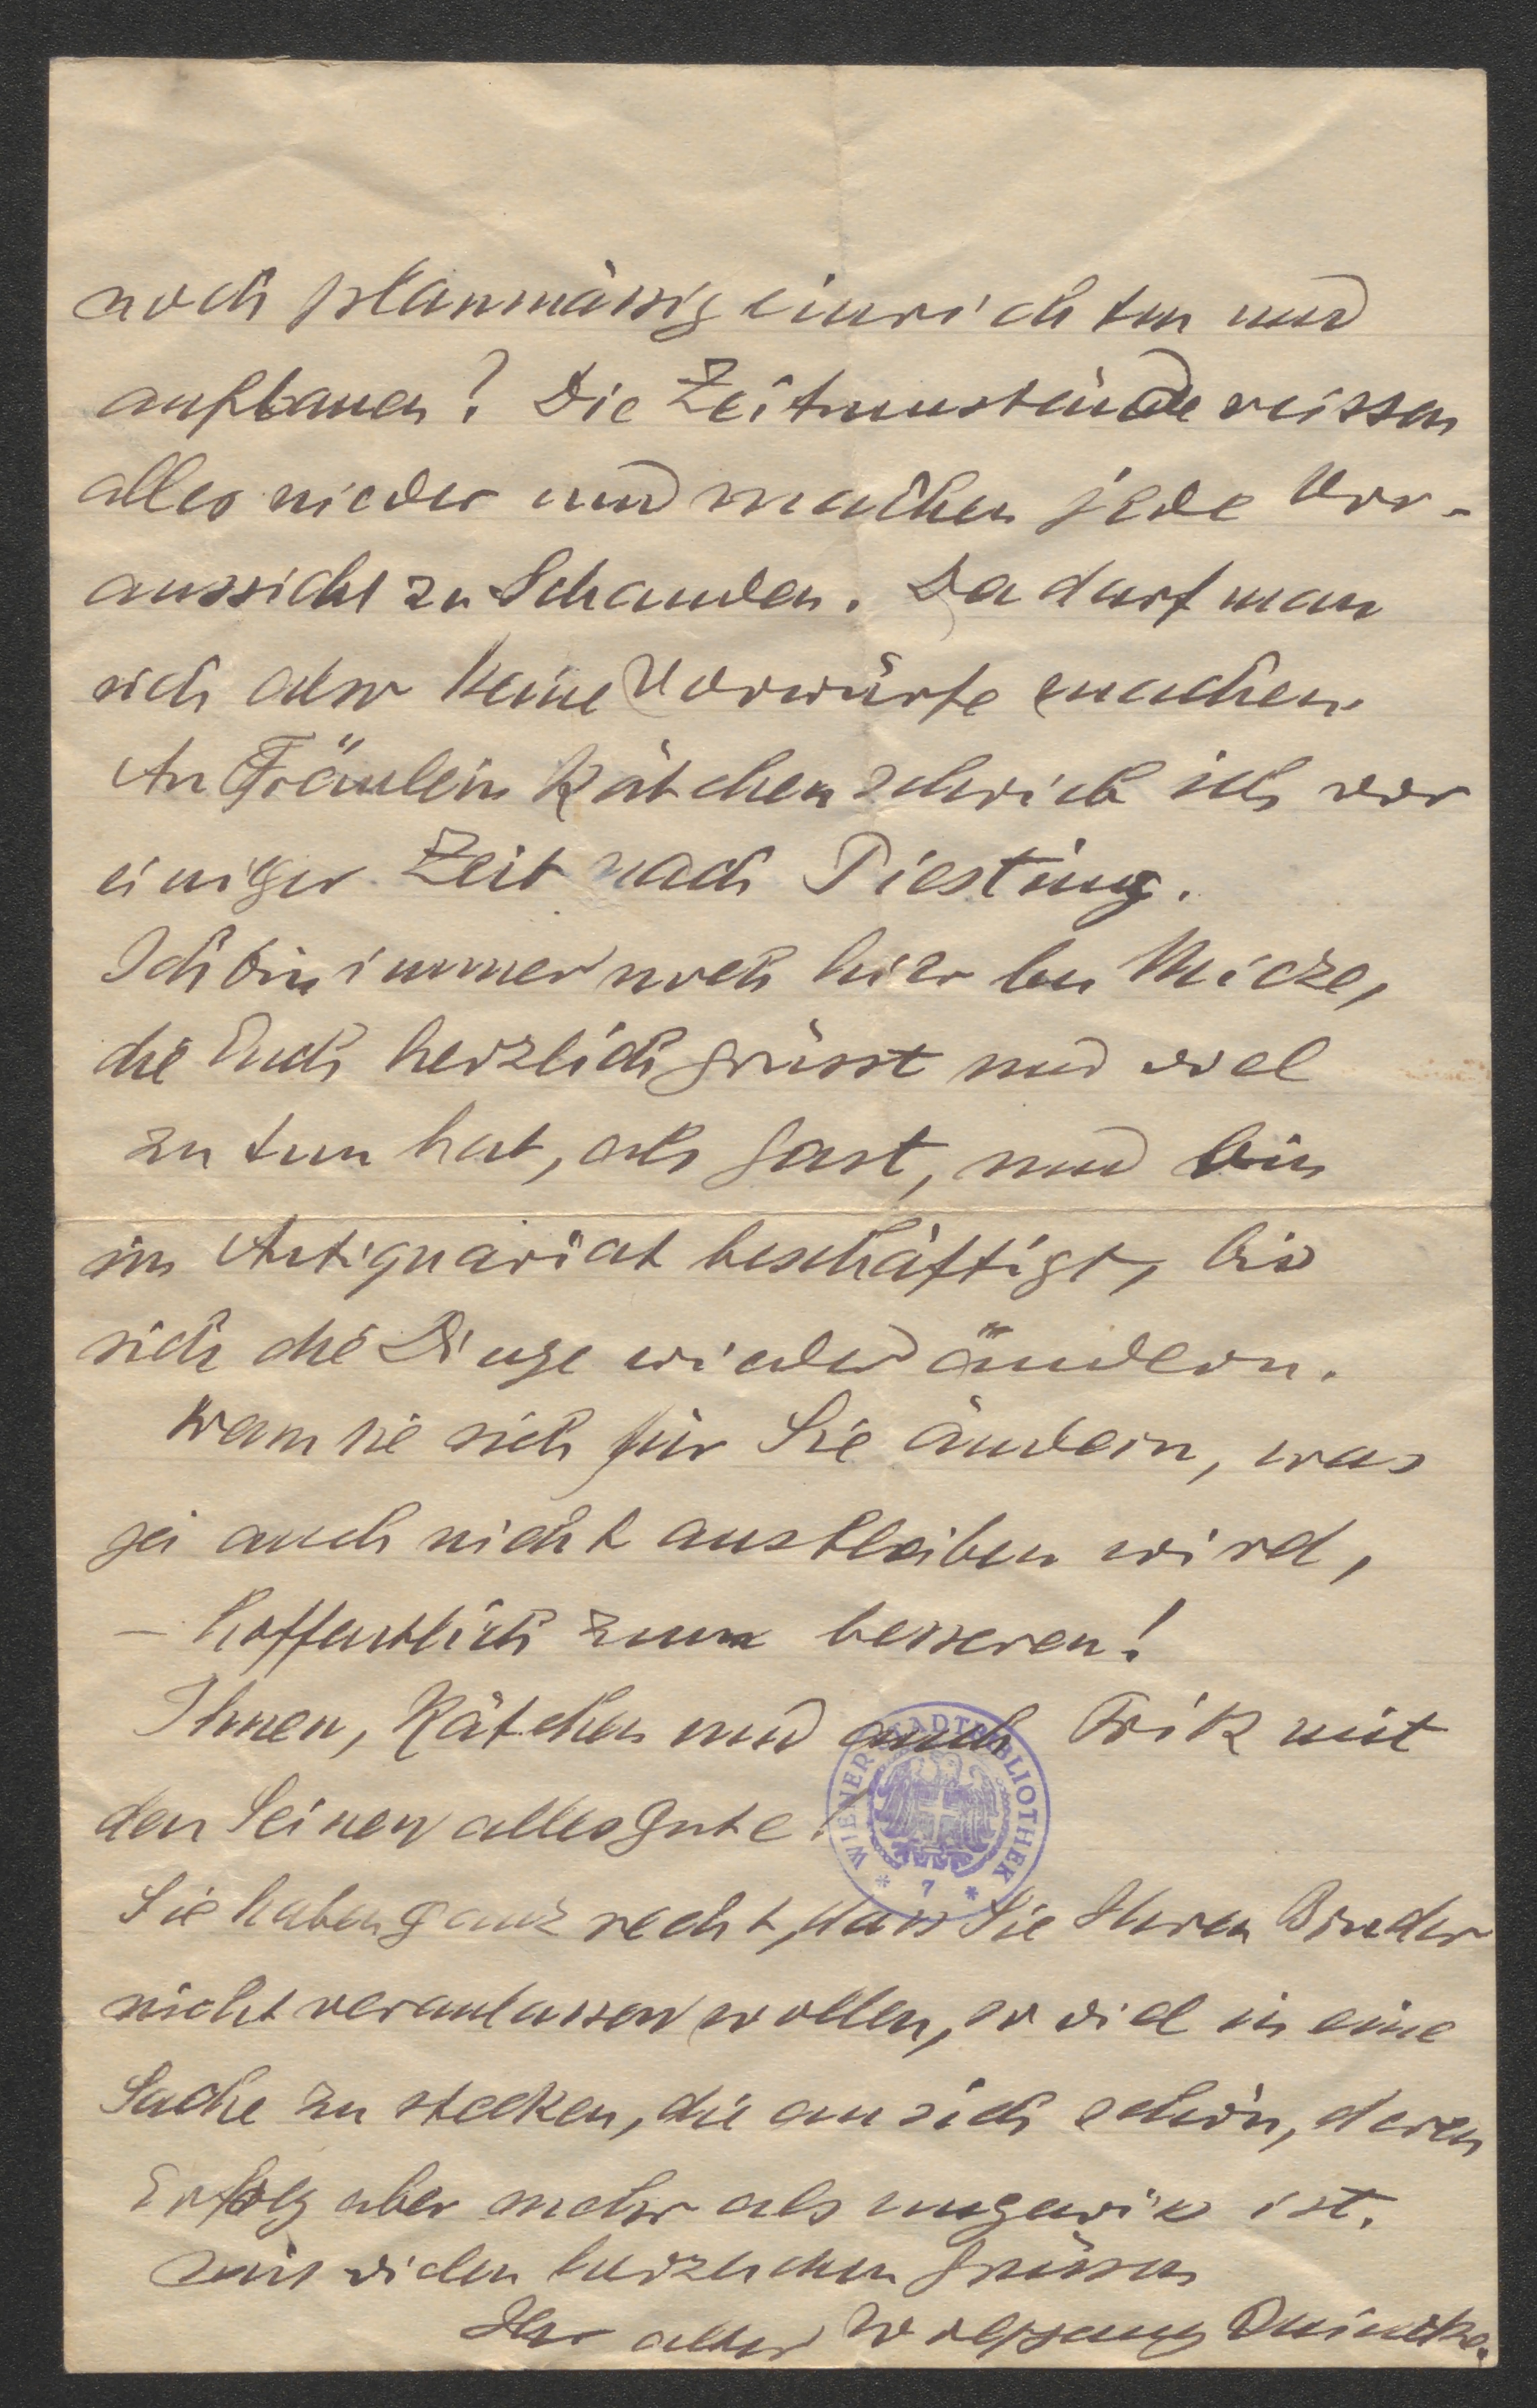 noch planmässig einrichten und
aufbauen? Die Zeitumstände reissen
alles nieder und machen jede Vor-
aussicht zu Schanden. Da darf man
sich aber keine Vorwürfe machen.
An Fräulein Kätchen schrieb ich vor
einiger Zeit nach Piesting.
Ich bin immer noch hier bei Mieze,
die Euch herzlich grüsst und viel
zu tun hat, als Gast, und bin
im Antiquariat beschäftigt, bis
sich die Dinge wieder ändern.
Wenn sie sich für Sie ändern, was
ja auch nicht ausbleiben wird,
– hoffentlich zum besseren!
Ihnen, Kätchen und auch Erik mit
den Seinen alles Gute!
WIENER STADTBIBLIOTHEK
* 7 *
Sie haben ganz recht, dass Sie Ihren Bruder
nicht veranlassen wollen, so viel in eine
Sache zu stecken, die an sich schön, deren
Erfolg aber mehr als ungewiss ist.
Mit vielen herzlichen Grüssen
Ihr alter Wolfgang Quincke.